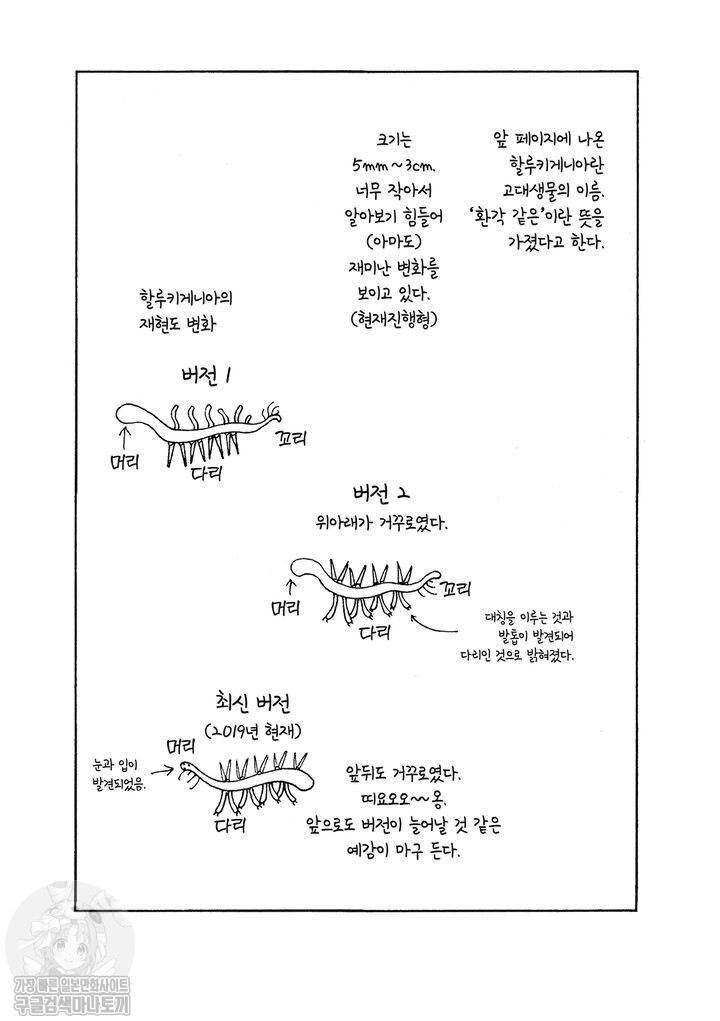 앞 페이지에 나온
할루키게니아란
고대생물의 이름.
‘환각 같은’이란 뜻을
가졌다고 한다.
크기는
5mm~3cm.
너무 작아서
알아보기 힘들어
(아마도)
재미난 변화를
보이고 있다.
(현재진행형)
할루키게니아의
재현도 변화
버전 1
머리
다리
꼬리
버전 2
위아래가 거꾸로였다.
머리
다리
꼬리
대칭을 이루는 것과
발톱이 발견되어
다리인 것으로 밝혀졌다.
최신 버전
(2019년 현재)
머리
눈과 입이
발견되었음.
다리
앞뒤도 거꾸로였다.
띠요오오~~옹.
앞으로도 버전이 늘어날 것 같은
예감이 마구 든다.
가장 빠른 일본만화사이트
구글검색마나토끼